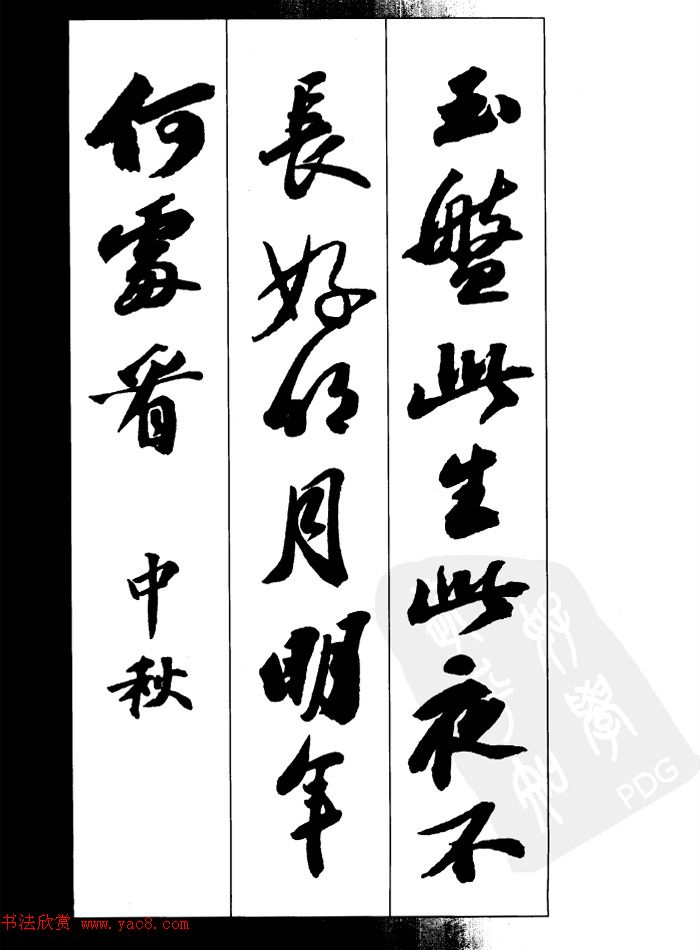 玉盤此生此夜不
長好明月明年
何處看 中秋
书法欣赏 www.yac8.com
PDG